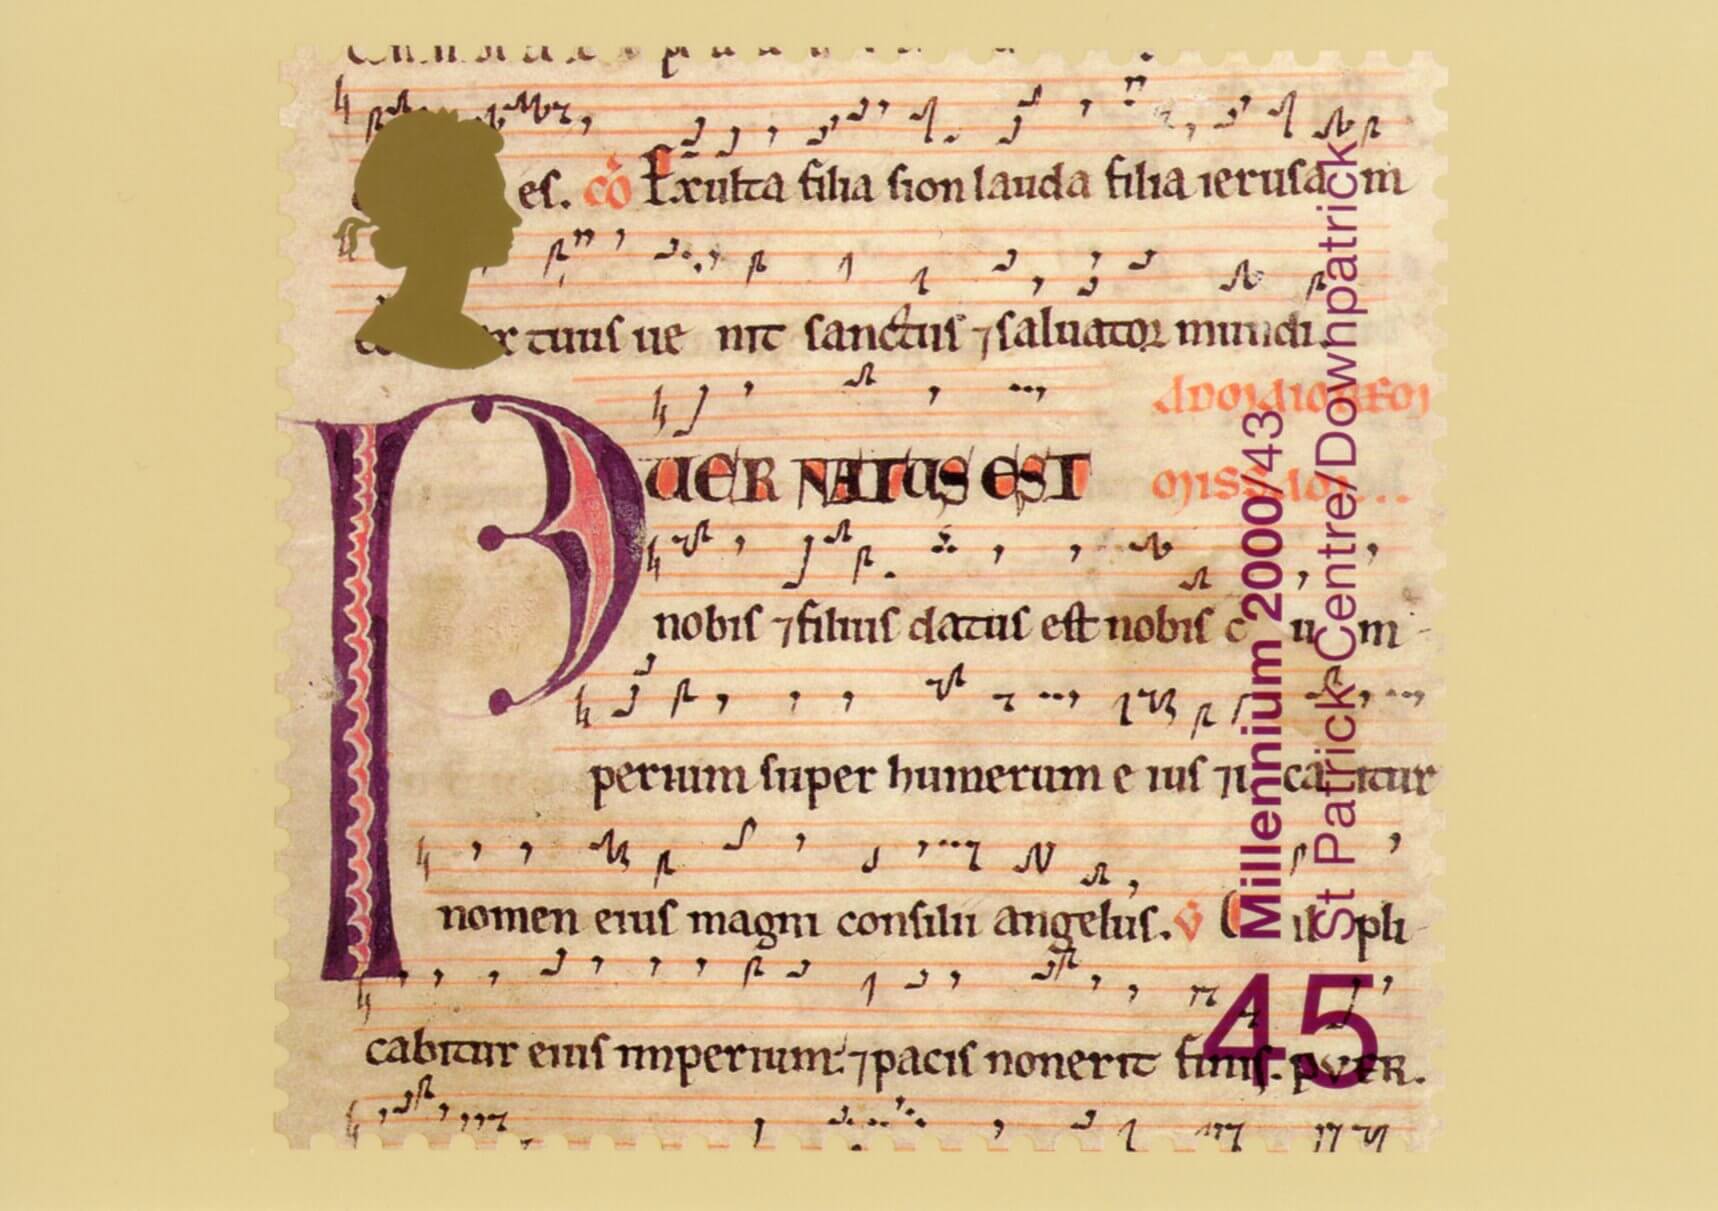 es. cō Exulta filia sion lauda filia ierusa m
x tuus ue nit sanctus ⁊ saluator mundi.
PUER NATUS EST
nobis ⁊ filius datus est nobis c u m-
perium super humerum e ius ⁊ u ca itur
nomen eius magni consilii angelus. v̄ il pli-
cabitur eius imperium: ⁊ pacis non erit finis. pVER.
Millennium 2000/43
St Patrick Centre/Downpatrick
45